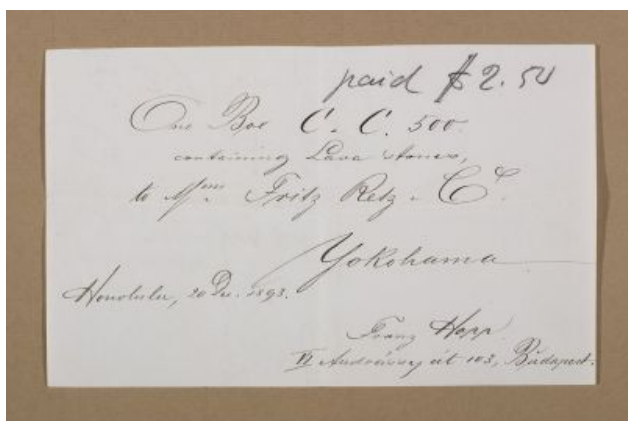 paid $2.50
One Box C. C. 500.
containing Lava stones,
to Mess. Fritz Retz & Co.
Yokohama
Honolulu, 20 Dec. 1893.
Franz Hopp
VI Andrássy út 103, Budapest.